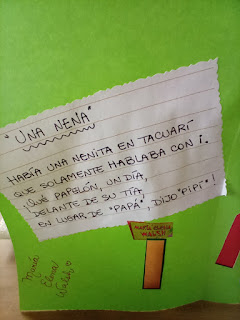 "UNA NENA"
HABÍA UNA NENITA EN TACUARÍ
QUE SOLAMENTE HABLABA CON I.
QUÉ PAPELÓN, UN DÍA,
DELANTE DE SU TÍA,
EN LUGAR DE "PAPÁ", DIJO "PIPÍ"!
MARÍA ELENA
WALSH
María
Elena
Walsh